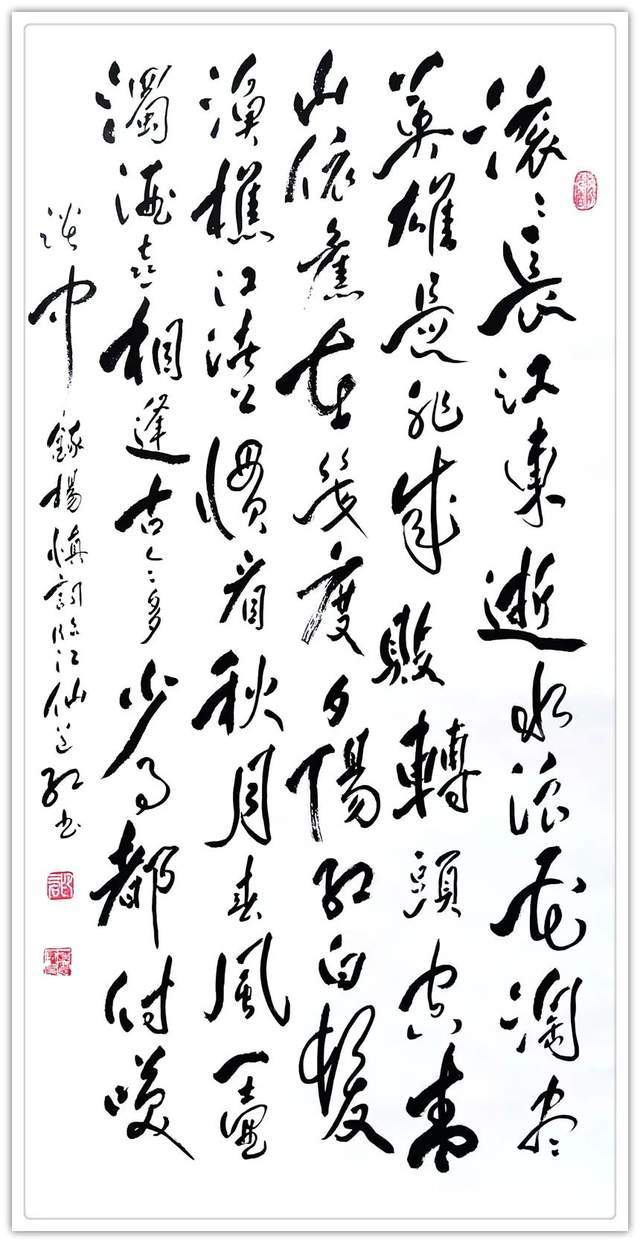 滚〻長江東逝水浪花淘尽
英雄是非成敗轉頭空青
山依舊在幾度夕陽紅白髮
漁樵江渚上慣看秋月春風一壺
濁酒喜相逢古今多少事都付笑
談中 錄楊慎詞臨江仙 紅書